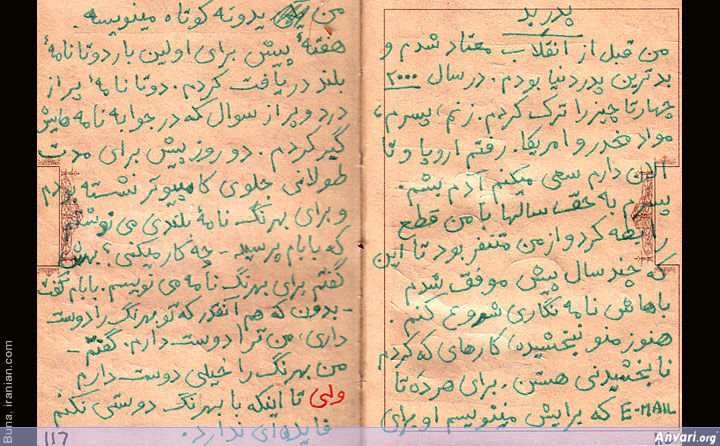 پدر بد
من قبل از انقلاب معتاد شدم و
بدترین پدر دنیا بودم. در سال ۲۰۰۰
چهار تا چیز را ترک کردم. زنم، پسرم،
مواد مخدر و امریکا. رفتم اروپا و تا
الان دارم سعی میکنم آدم بشم.
پسرم به حق سالها با من قطع
رابطه کرد و از من متنفر بود تا این
که چند سال پیش موفق شدم
باهاش نامه نگاری شروع کنم.
هنوز منو نبخشیده، کارهای که کردم
نابخشیدنی هستن. برای هر ده تا
E-MAIL که برایش مینویسم او برای
من یدونه کوتاه مینویسه.
هفتهٔ پیش برای اولین بار دو تا نامهٔ
بلند دریافت کردم. دو تا نامهٔ پر از
درد و پر از سوال که در جوابه نامه هایش
گیر کردم. دو روز پیش برای مدت
طولانی جلوی کامپیوتر نشسته بودم
و برای بهرنگ نامهٔ بلندی می نوشتم
که بابام پرسید - چه کار میکنی؟ بهش
گفتم برای بهرنگ نامه می نویسم. بابام گفت
- بدون که هم آنقدر که تو بهرنگ را دوست
داری، من ترا دوست دارم. گفتم -
من بهرنگ را خیلی دوست دارم
ولی تا اینکه با بهرنگ دوستی نکنم
فایده‌ای ندارد.
117
Buna. iranian.com
Anvari.org